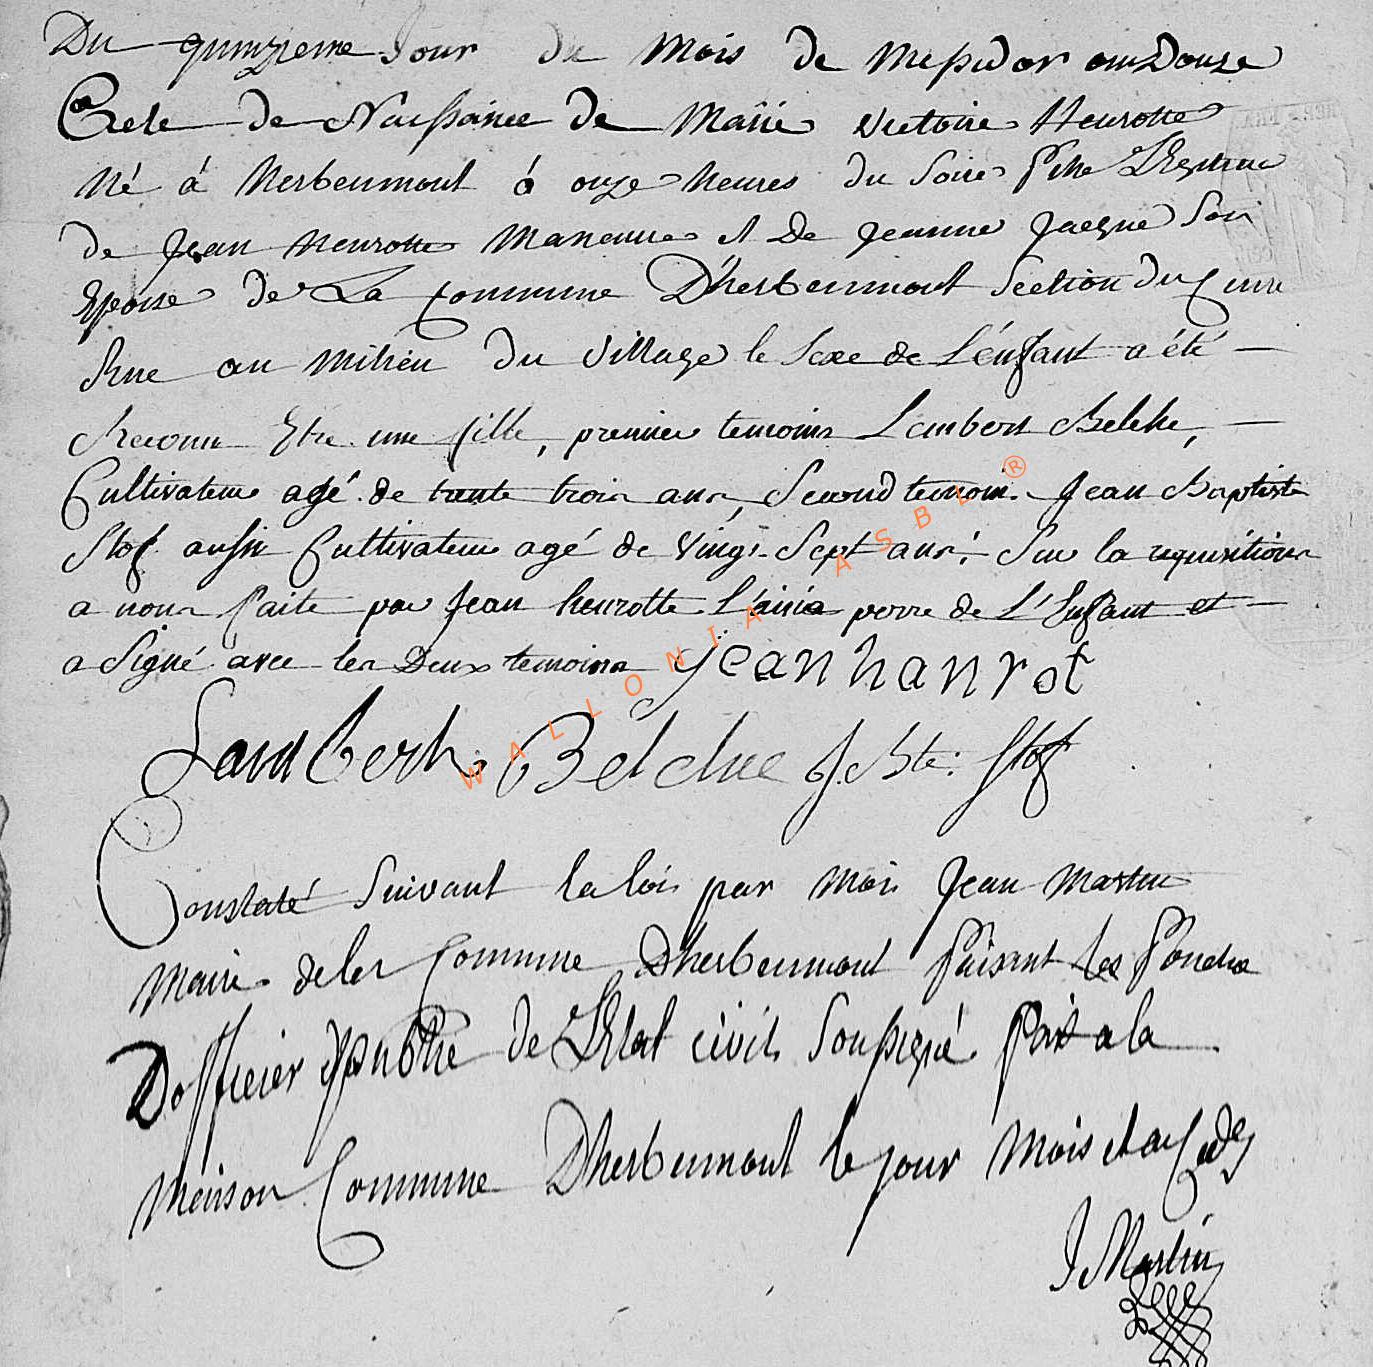 Du quinzieme Jour du Mois de Messidor an Douze
Acte de Naissance de Marie Victoire Heurotte
Né à Herbeumont à onze heures du Soire fille Legitime
de Jean Heurotte Maneuvre et De Jeanne Jacque Son
Epouse de La Commune D'herbeumont Section du
Rue au Milieu du Village le Sexe de L'énfant a été
Reconnu Etre une fille, premier temoins Lambert Belche,
Cultivateur agé de trente trois ans, Second temoin Jean Baptiste
Slof aussi Cultivateur agé de Vingt Sept ans; Sur la requisition
a nous faite par Jean heurotte L'ainé perre de L'Enfant et
a Signé avec les Deux temoins jeanhanrot
Lambert Belche J. Bte: Slof
Constaté Suivant la loi par Moi Jean Martin
Maire de la Commune D'herbeumont faisant les fonctions
Dofficier publie de L'Etat civil Soussigné fait a la
Meison Commune D'herbeumont le jour Mois et an
J Martin
WALLONIA ASBL ®